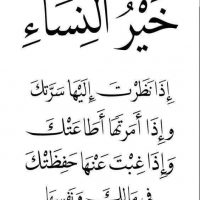 خَيْرُ النِّسَاءِ
إِذَا نَظَرْتَ إِلَيْهَا سَرَّتْكَ
وَإِذَا أَمَرْتَهَا أَطَاعَتْكَ
وَإِذَا غِبْتَ عَنْهَا حَفِظَتْكَ
فِي مَالِكَ وَنَفْسِهَا